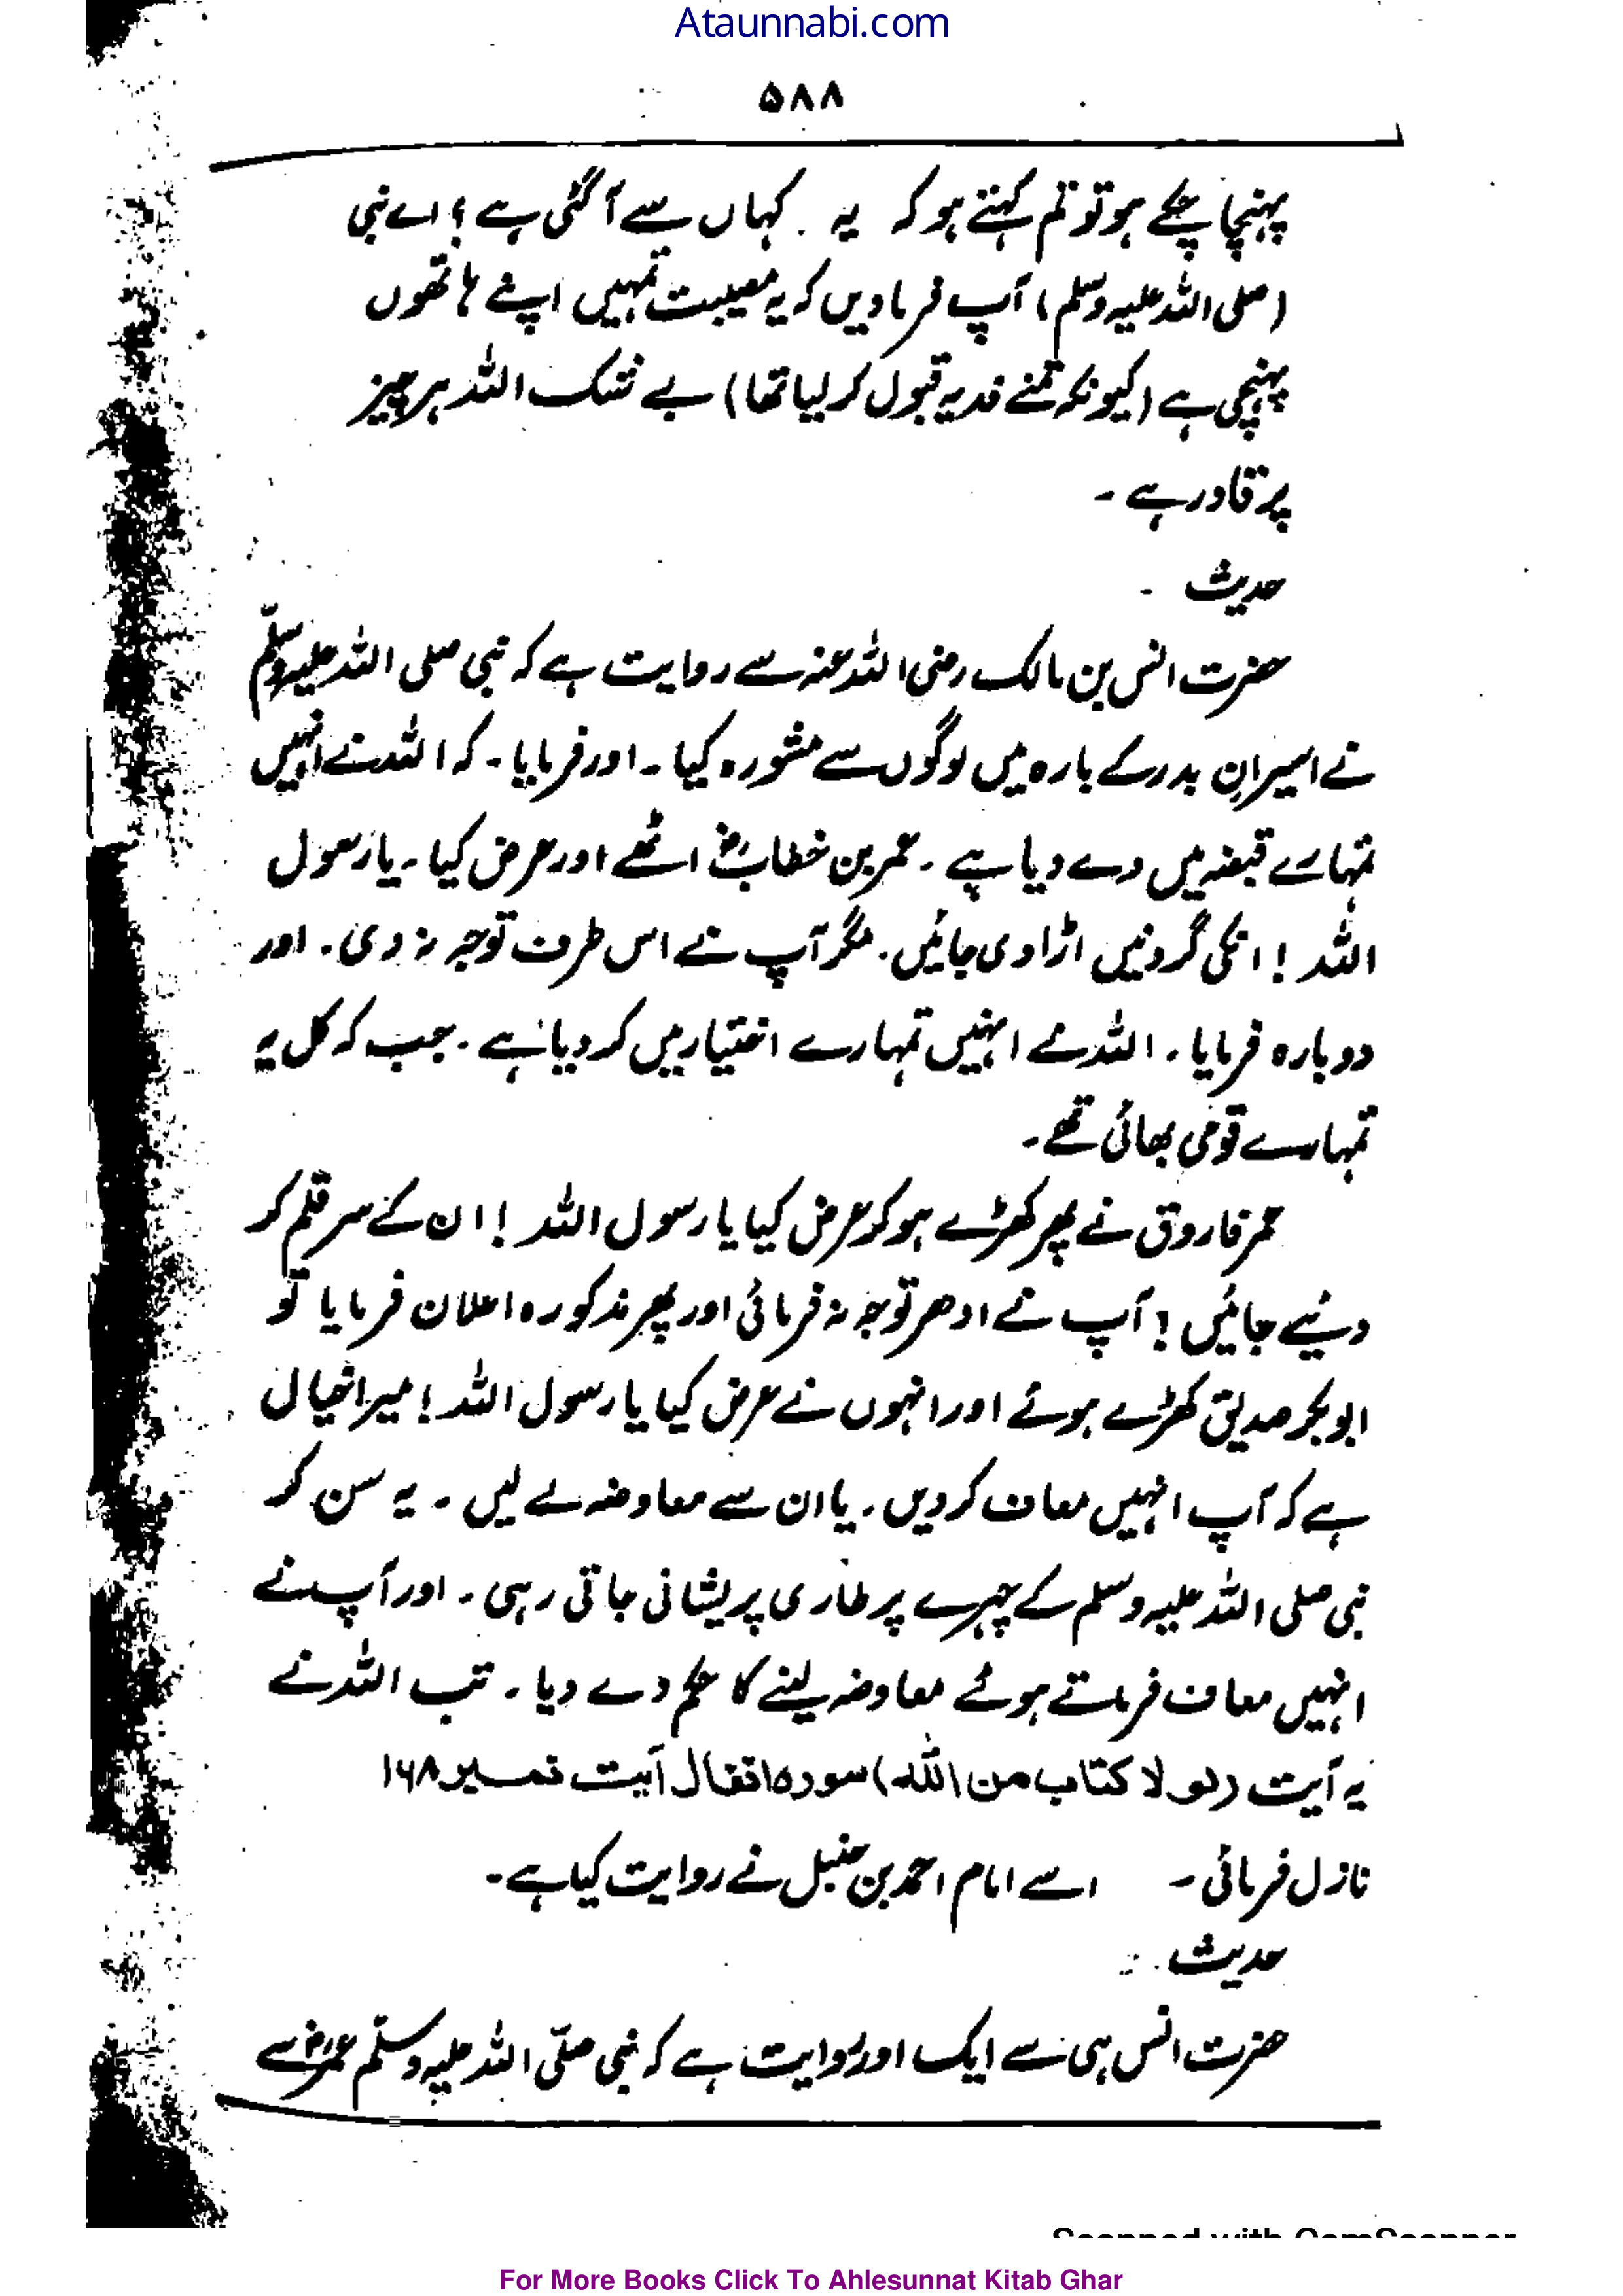 Ataunnabi.com
۵۸۸
پہنچا چکے ہو تو تم کہتے ہو کہ یہ کہاں سے آ گئی ہے؟ اے نبی
(صلی اللہ علیہ وسلم) آپ فرما دیں کہ یہ مصیبت تمہیں اپنے ہاتھوں
پہنچی ہے (کیونکہ تمنے فدیہ قبول کر لیا تھا) بے شک اللہ ہر چیز
پر قادر ہے ۔
حدیث ۔
حضرت انس بن مالک رضی اللہ عنہ سے روایت ہے کہ نبی صلی اللہ علیہ وسلّم
نے اسیرانِ بدر کے بارہ میں لوگوں سے مشورہ کیا ۔ اور فرمایا ۔ کہ اللہ نے انہیں
تمہارے قبضہ میں دے دیا ہے ۔ عمر بن خطابؓ اٹھے اور عرض کیا ۔ یا رسول
اللہ ! انکی گردنیں اڑا دی جائیں ۔ مگر آپ نے اس طرف توجہ نہ دی ۔ اور
دوبارہ فرمایا ۔ اللہ نے انہیں تمہارے اختیار میں کر دیا ہے ۔ جب کہ کل یہ
تمہارے قومی بھائی تھے ۔
عمر فاروق نے پھر کھڑے ہو کر عرض کیا یا رسول اللہ ! ان کے سر قلم کر
دئیے جائیں ! آپ نے ادھر توجہ نہ فرمائی اور پھر مذکورہ اعلان فرمایا تو
ابوبکر صدیق کھڑے ہوئے اور انہوں نے عرض کیا یا رسول اللہ ! میرا خیال
ہے کہ آپ انہیں معاف کر دیں ۔ یا ان سے معاوضہ لے لیں ۔ یہ سن کر
نبی صلی اللہ علیہ وسلم کے چہرے پر طاری پریشانی جاتی رہی ۔ اور آپ نے
انہیں معاف فرماتے ہوئے معاوضہ لینے کا حکم دے دیا ۔ تب اللہ نے
یہ آیت (لولا کتاب من اللہ) سورہ انفال آیت نمبر ۱۶۸
نازل فرمائی ۔ اسے امام احمد بن حنبل نے روایت کیا ہے ۔
حدیث :
حضرت انس ہی سے ایک اور روایت ہے کہ نبی صلّی اللہ علیہ وسلّم عمرؓ سے
Scanned with CamScanner
For More Books Click To Ahlesunnat Kitab Ghar